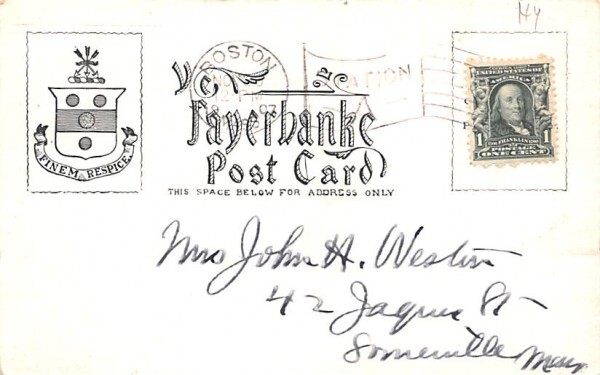 HY
BOSTON
STATION
Ye
Fayerbanke
Post Card
THIS SPACE BELOW FOR ADDRESS ONLY
FINEM RESPICE
UNITED STATES OF AMERICA
1 1
FRANKLIN
POSTAGE
ONE CENT
Mrs John H. Weston
42 Jaques St
Somerville Mass